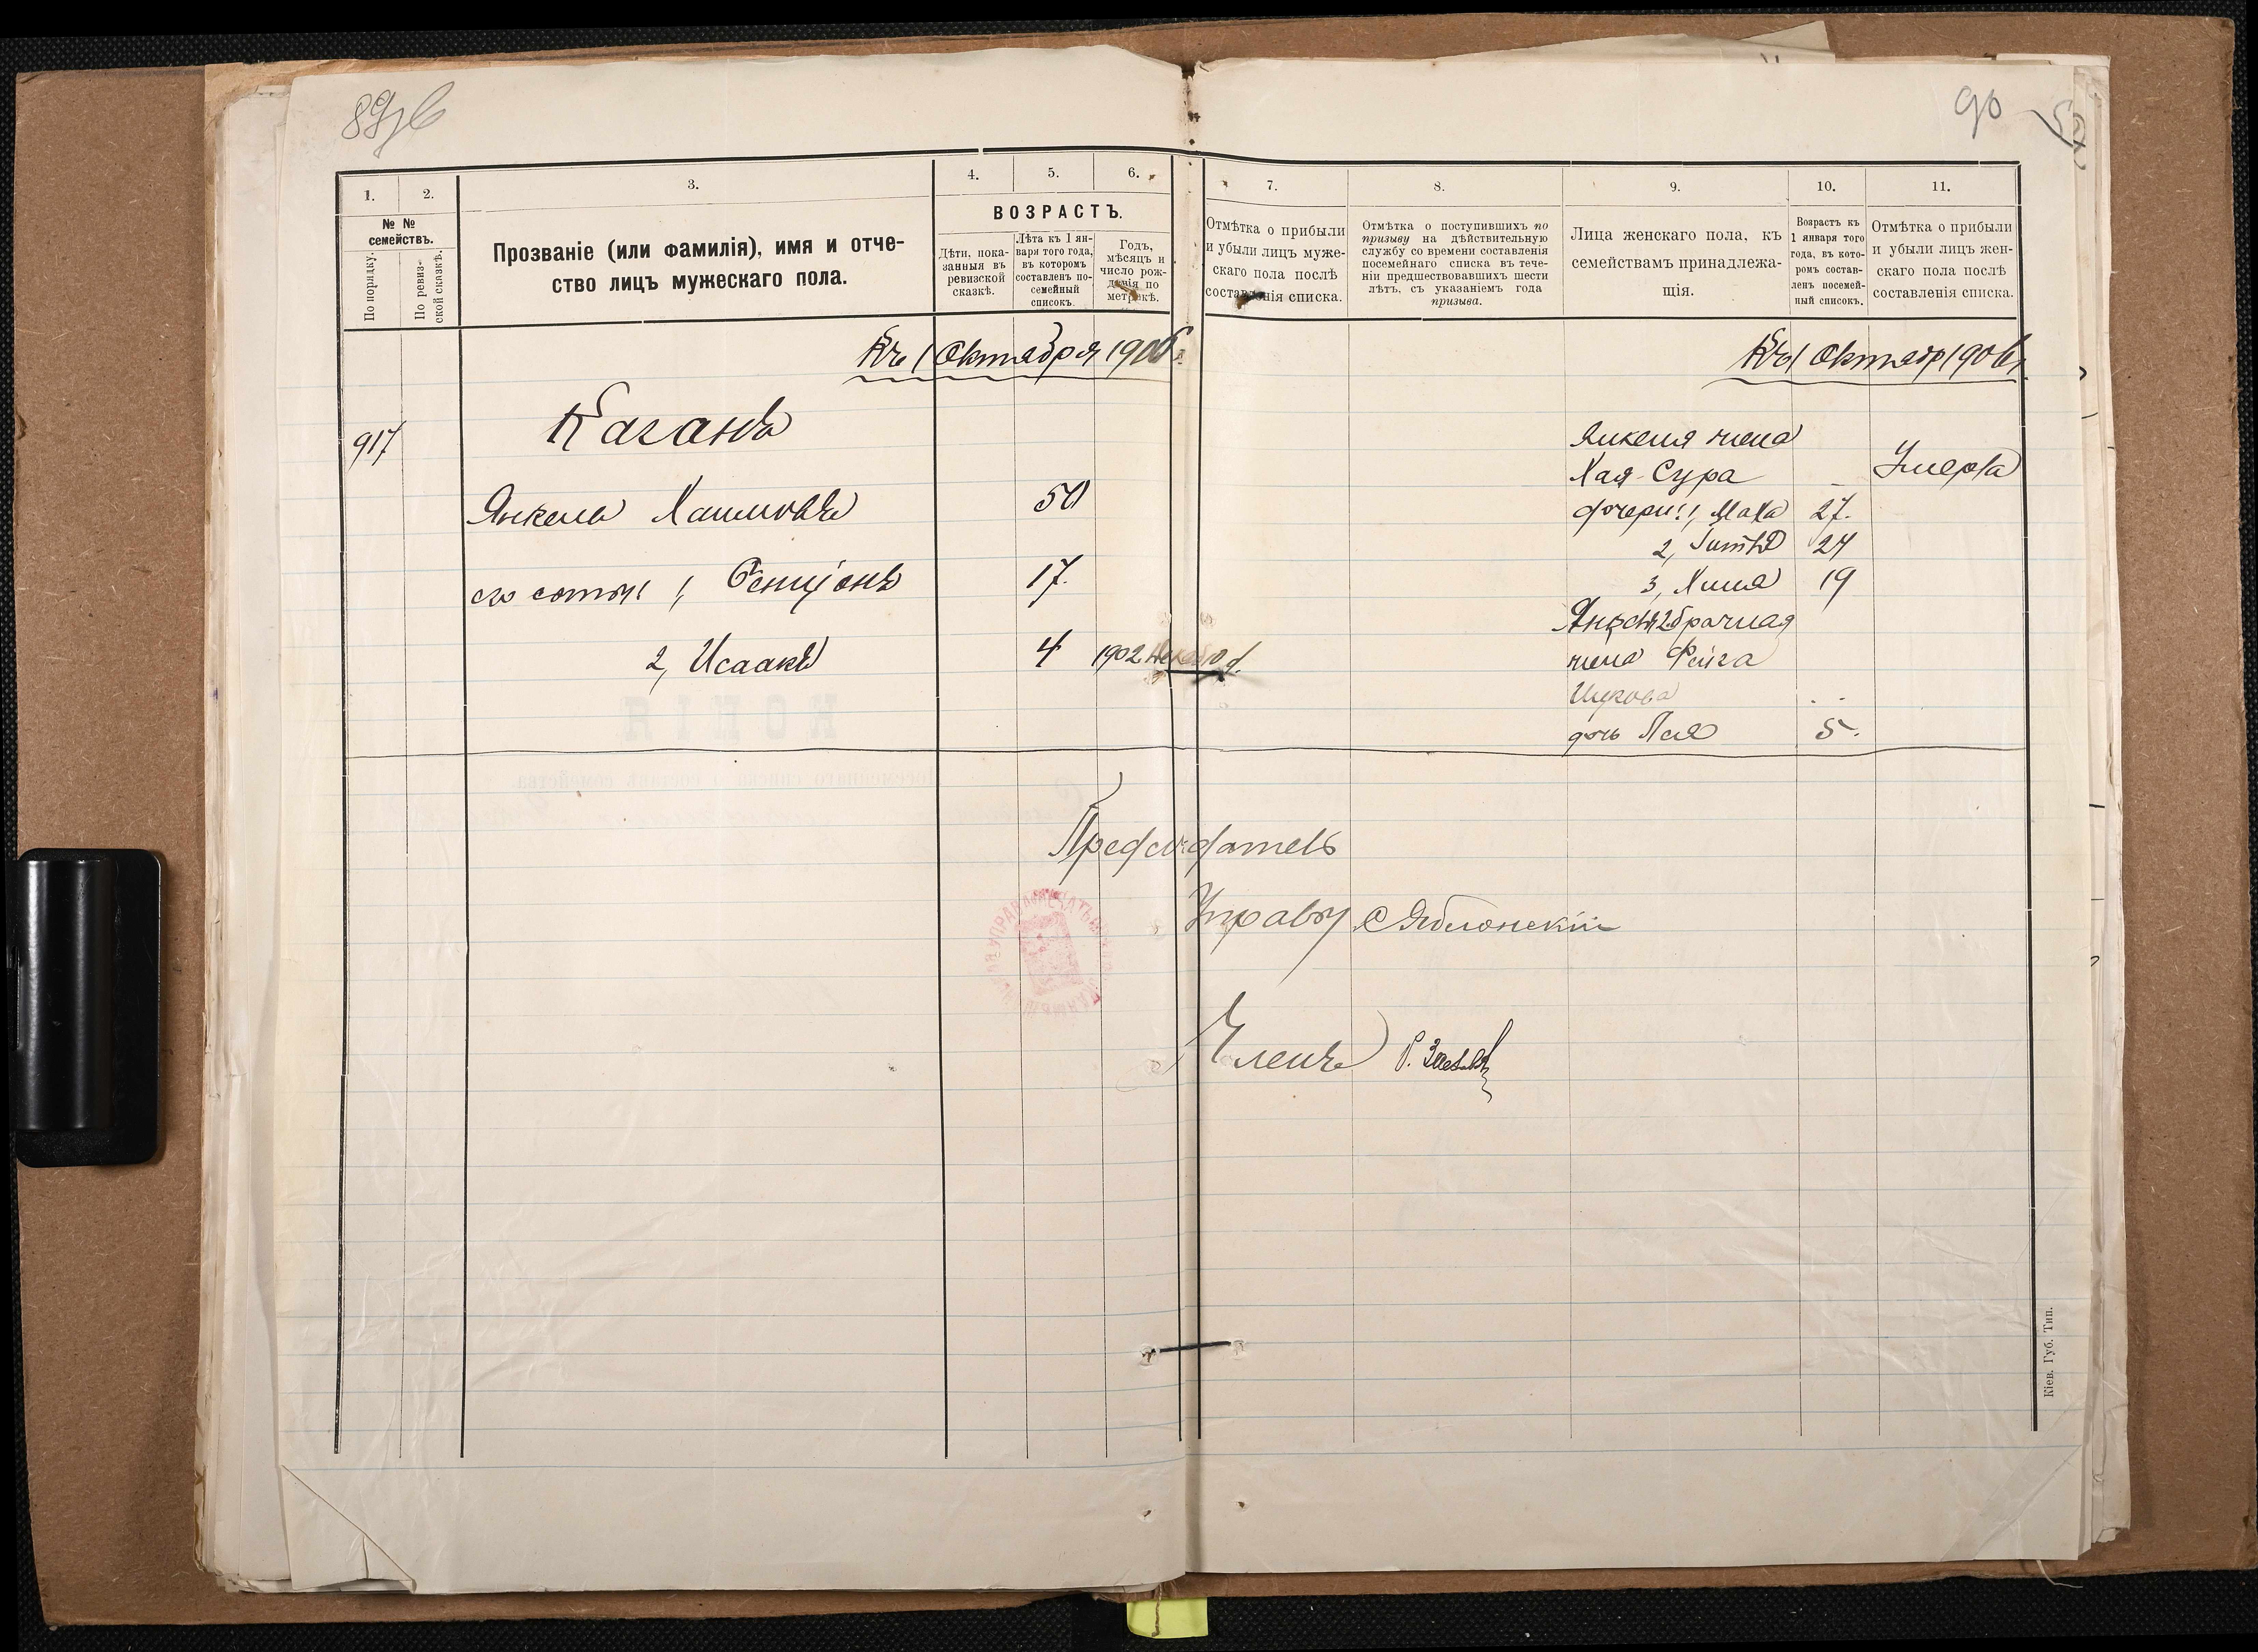 89об
90
1.
2.
3.
4.
5.
6.
7.
8.
9.
10.
11.
№ №
семействъ.
По порядку.
По ревиз-
ской сказкѣ.
Прозваніе (или фамилія), имя и отче-
ство лицъ мужескаго пола.
ВОЗРАСТЪ.
Дѣти, пока-
занныя въ
ревизской
сказкѣ.
Лѣта къ 1 ян-
варя того года,
въ которомъ
составленъ по-
семейный
списокъ.
Годъ,
мѣсяцъ и
число рож-
денія по
метрикѣ.
Отмѣтка о прибыли
и убыли лицъ муже-
скаго пола послѣ
составленія списка.
Отмѣтка о поступившихъ по
призыву на дѣйствительную
службу со времени составленія
посемейнаго списка въ тече-
ніи предшествовавшихъ шести
лѣтъ, съ указаніемъ года
призыва.
Лица женскаго пола, къ
семействамъ принадлежа-
щія.
Возрастъ къ
1 января того
года, въ кото-
ромъ состав-
ленъ посемей-
ный списокъ.
Отмѣтка о прибыли
и убыли лицъ жен-
скаго пола послѣ
составленія списка.
Къ 1 Октября 1906 г.
917
Каганъ
Янкель Хаимовъ 50
его сыны 1, Бенціонъ 17.
2, Исаакъ 4 1902
Къ 1 Октябр 1906 г.
Янкеля жена
Хая-Сура Умерла
дочери: 1, 27.
2, Гитля 24
3, 19
Янкеля 2 брачная
жена Фейга
дочь Лея 5.
Предсѣдатель
Управы С Яблонскій
Членъ
Кіев. Губ. Тип.